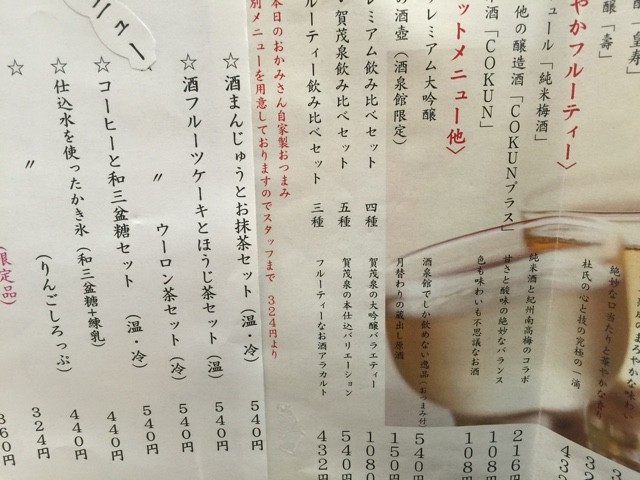 「皇寿」
醸「壽」
やかフルーティー〉
ュール「純米梅酒」
他の醸造酒「COKUNプラス」
酒「COKUN」
ットメニュー他〉
レミアム大吟醸
の酒壺（酒泉館限定）
レミアム飲み比べセット 四種
・賀茂泉飲み比べセット 五種
ルーティー飲み比べセット 三種
まろやかな味わい
絶妙な口当たりと華やかな香り
杜氏の心と技の究極の一滴
純米酒と紀州南高梅のコラボ
甘さと酸味の絶妙なバランス
色も味わいも不思議なお酒
酒泉館でしか飲めない逸品（おつまみ付）
月替わりの蔵出し原酒
賀茂泉の大吟醸バラエティー
賀茂泉の本仕込バリエーション
フルーティーなお酒アラカルト
432
432
216円
108
108
540
150
1080
540円
432円
本日のおかみさん自家製おつまみ
別メニューを用意しておりますのでスタッフまで 324円より
ニュー
☆酒まんじゅうとお抹茶セット（温・冷） 540円
☆酒フルーツケーキとほうじ茶セット（温） 540円
〃 ウーロン茶セット（冷） 540円
☆コーヒーと和三盆糖セット（温・冷） 440円
☆仕込水を使ったかき氷（和三盆糖+練乳） 440円
〃 （りんごしろっぷ） 324円
☆
限定品）
360円